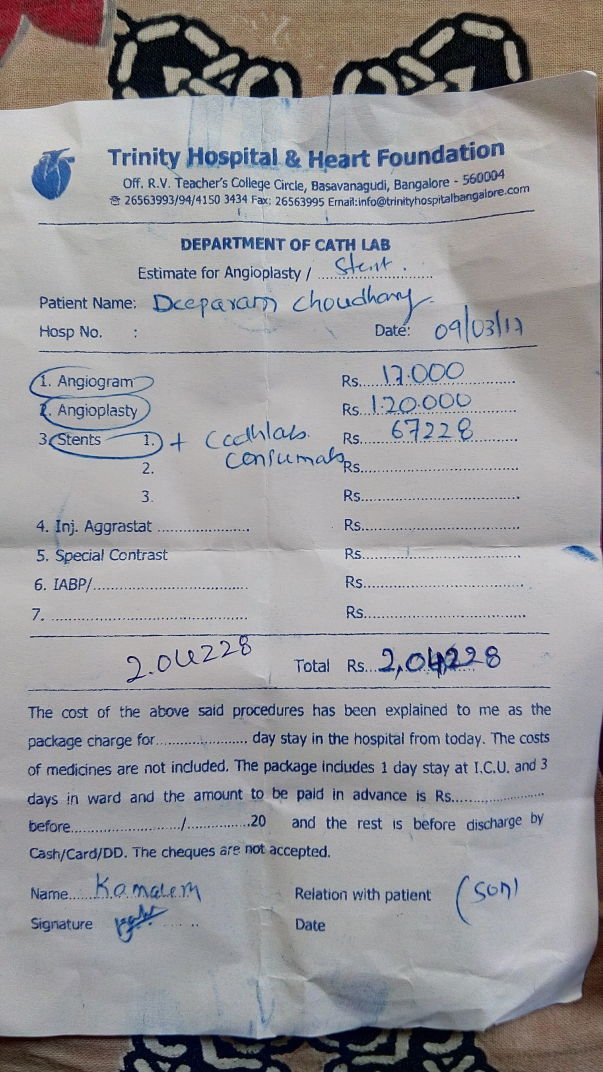 Trinity Hospital & Heart Foundation
Off. R.V. Teacher's College Circle, Basavanagudi, Bangalore - 560004
☎ 26563993/94/4150 3434 Fax: 26563995 Email:info@trinityhospitalbangalore.com
DEPARTMENT OF CATH LAB
Estimate for Angioplasty / Stent.
Patient Name: Deeparam Choudhary
Hosp No. : Date: 09/03/17
1. Angiogram Rs. 17.000
2. Angioplasty Rs. 1.20.000
3. Stents 1. + Cathlab Rs. 67228
2. consumab Rs.
3. Rs.
4. Inj. Aggrastat Rs.
5. Special Contrast Rs.
6. IABP/ Rs.
7. Rs.
2.04228 Total Rs. 2,04,228
The cost of the above said procedures has been explained to me as the
package charge for.................... day stay in the hospital from today. The costs
of medicines are not included. The package includes 1 day stay at I.C.U. and 3
days in ward and the amount to be paid in advance is Rs....................
before..................../...............20 and the rest is before discharge by
Cash/Card/DD. The cheques are not accepted.
Name Relation with patient (son)
Signature Date